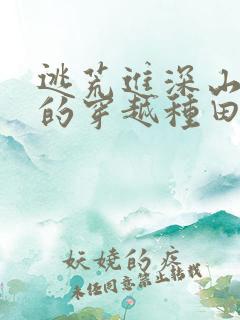 逃荒進深山
的穿越種田
妖嬈的疾
未經同意禁止轉載